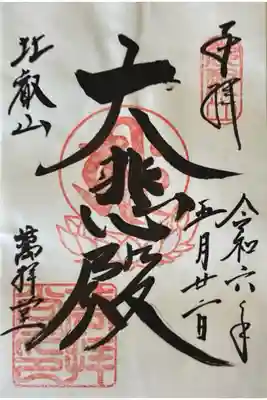 奉拝
令和六年
五月廿二日
大悲殿
比叡山
萬拝堂